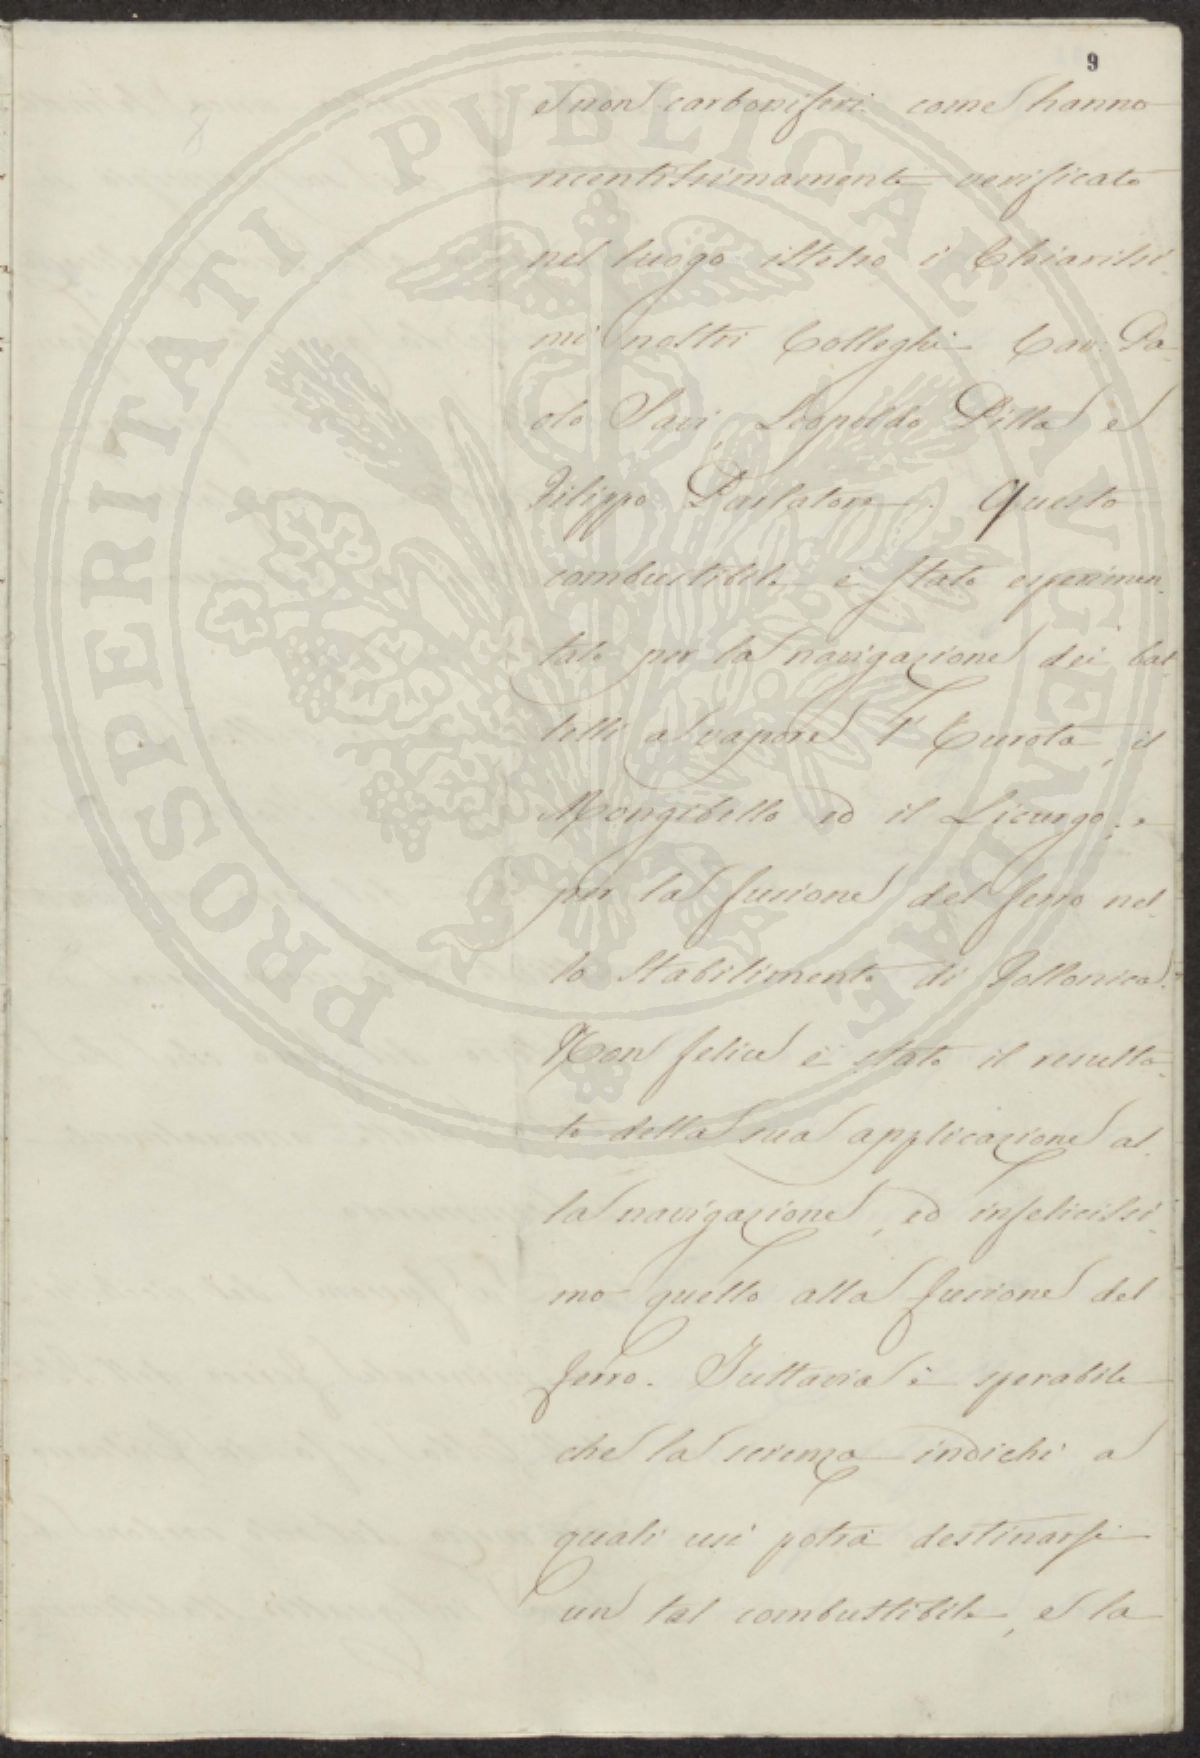 9
e non carboniferi come hanno
recentissimamente verificato
nel luogo istesso i Chiarissi-
mi nostri Colleghi Cav: Pa-
olo Savi, Leopoldo Pilla e
Filippo Parlatore. Questo
combustibile è stato esperimen-
tato per la navigazione dei bat-
telli a vapore l'Eurota, il
Mongibello ed il Licurgo; e
per la fusione del ferro nel-
lo stabilimento di Follonica.
Non felice è stato il resulta-
to della sua applicazione al-
la navigazione, ed infelicissi-
mo quello alla fusione del
ferro. Tuttavia è sperabile
che la scienza indichi a
quali usi potrà destinarsi
un tal combustibile, e la
PROSPERITATI PUBLICAE AUGENDAE